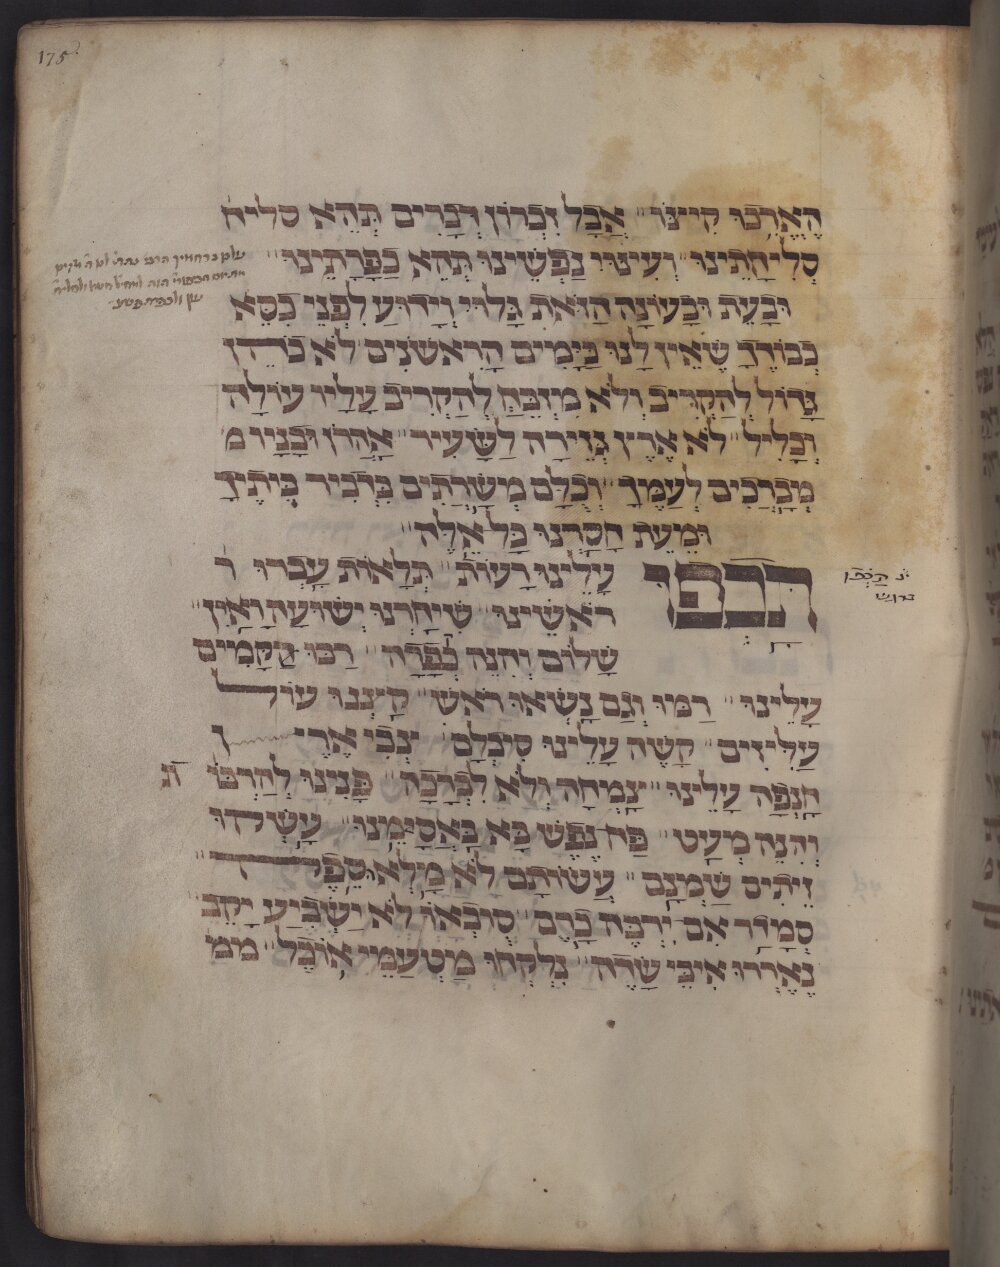 175
הֶאֱרַכְנוּ קִיצֵנוּ אֲבָל זִכְרוֹן דְּבָרִים תְּהֵא סליח
סְלִיחָתֵינוּ וְעִינוּי נַפְשֵׁינוּ תְּהֵא כַפָּרָתֵינוּ
וּבָעֵת וּבָעוֹנָה הַזֹּאת גָּלוּי וְיָדוּעַ לִפְנֵי כִסֵּא
כְבוֹדֶךָ שֶׁאֵין לָנוּ כַּיָּמִים הָרִאשֹׁנִים לֹא כֹהֵן
גָּדוֹל לְהַקְרִיב וְלֹא מִזְבֵּחַ לְהַקְרִיב עָלָיו עוֹלָה
וְכָלִיל לֹא אֶרֶץ גְּזֵירָה לַשָּׂעִיר אַהֲרֹן וּבָנָיו מ
מְבָרְכִים לְעַמֶּךָ וְכֻלָּם מְשָׁרְתִים בִּדְבִיר בֵּיתֶךָ
וּמֵעֵת חָסַרְנוּ כָּל אֵלֶּה
תכפו עָלֵינוּ רָעוֹת תְּלָאוֹת עָבְרוּ ר
רֹאשֵׁינוּ שִׁיחַרְנוּ יְשׁוּעָה וָאַיִן
שָׁלוֹם וְהִנֵּה בְעָתָה רַבּוּ הַקָּמִים
עָלֵינוּ רָמוּ וְגַם נָשְׂאוּ רֹאשׁ קַצְנוּ עוֹל
עַלִּיזִים קָשֶׁה עָלֵינוּ סוּבְּלָם יְבוּל אֶרֶץ
חָנְפָה עָלֵינוּ צָמְחָה וְלֹא לִבְרָכָה פָּנִינוּ לְהַרְבּוֹת
וְהִנֵּה מְעָט פַּח נֶפֶשׁ בָּא בַּאֲסָמֵינוּ עָשְׁקוּ
זֵיתִים שַׁמְנָם עֲשׂוֹתָם לֹא מָלְאָה סֵפֶל
סְמָדַר אִם יִרְבֶּה בַּכֶּרֶם סוֹבְאוֹ לֹא יַשְׂבִּיעַ יֶקֶב
נֶאֶרְרוּ אִיבֵּי שָׂדֶה נִלְקְחוּ מַטְעַמֵּי אוֹכֶל ממ